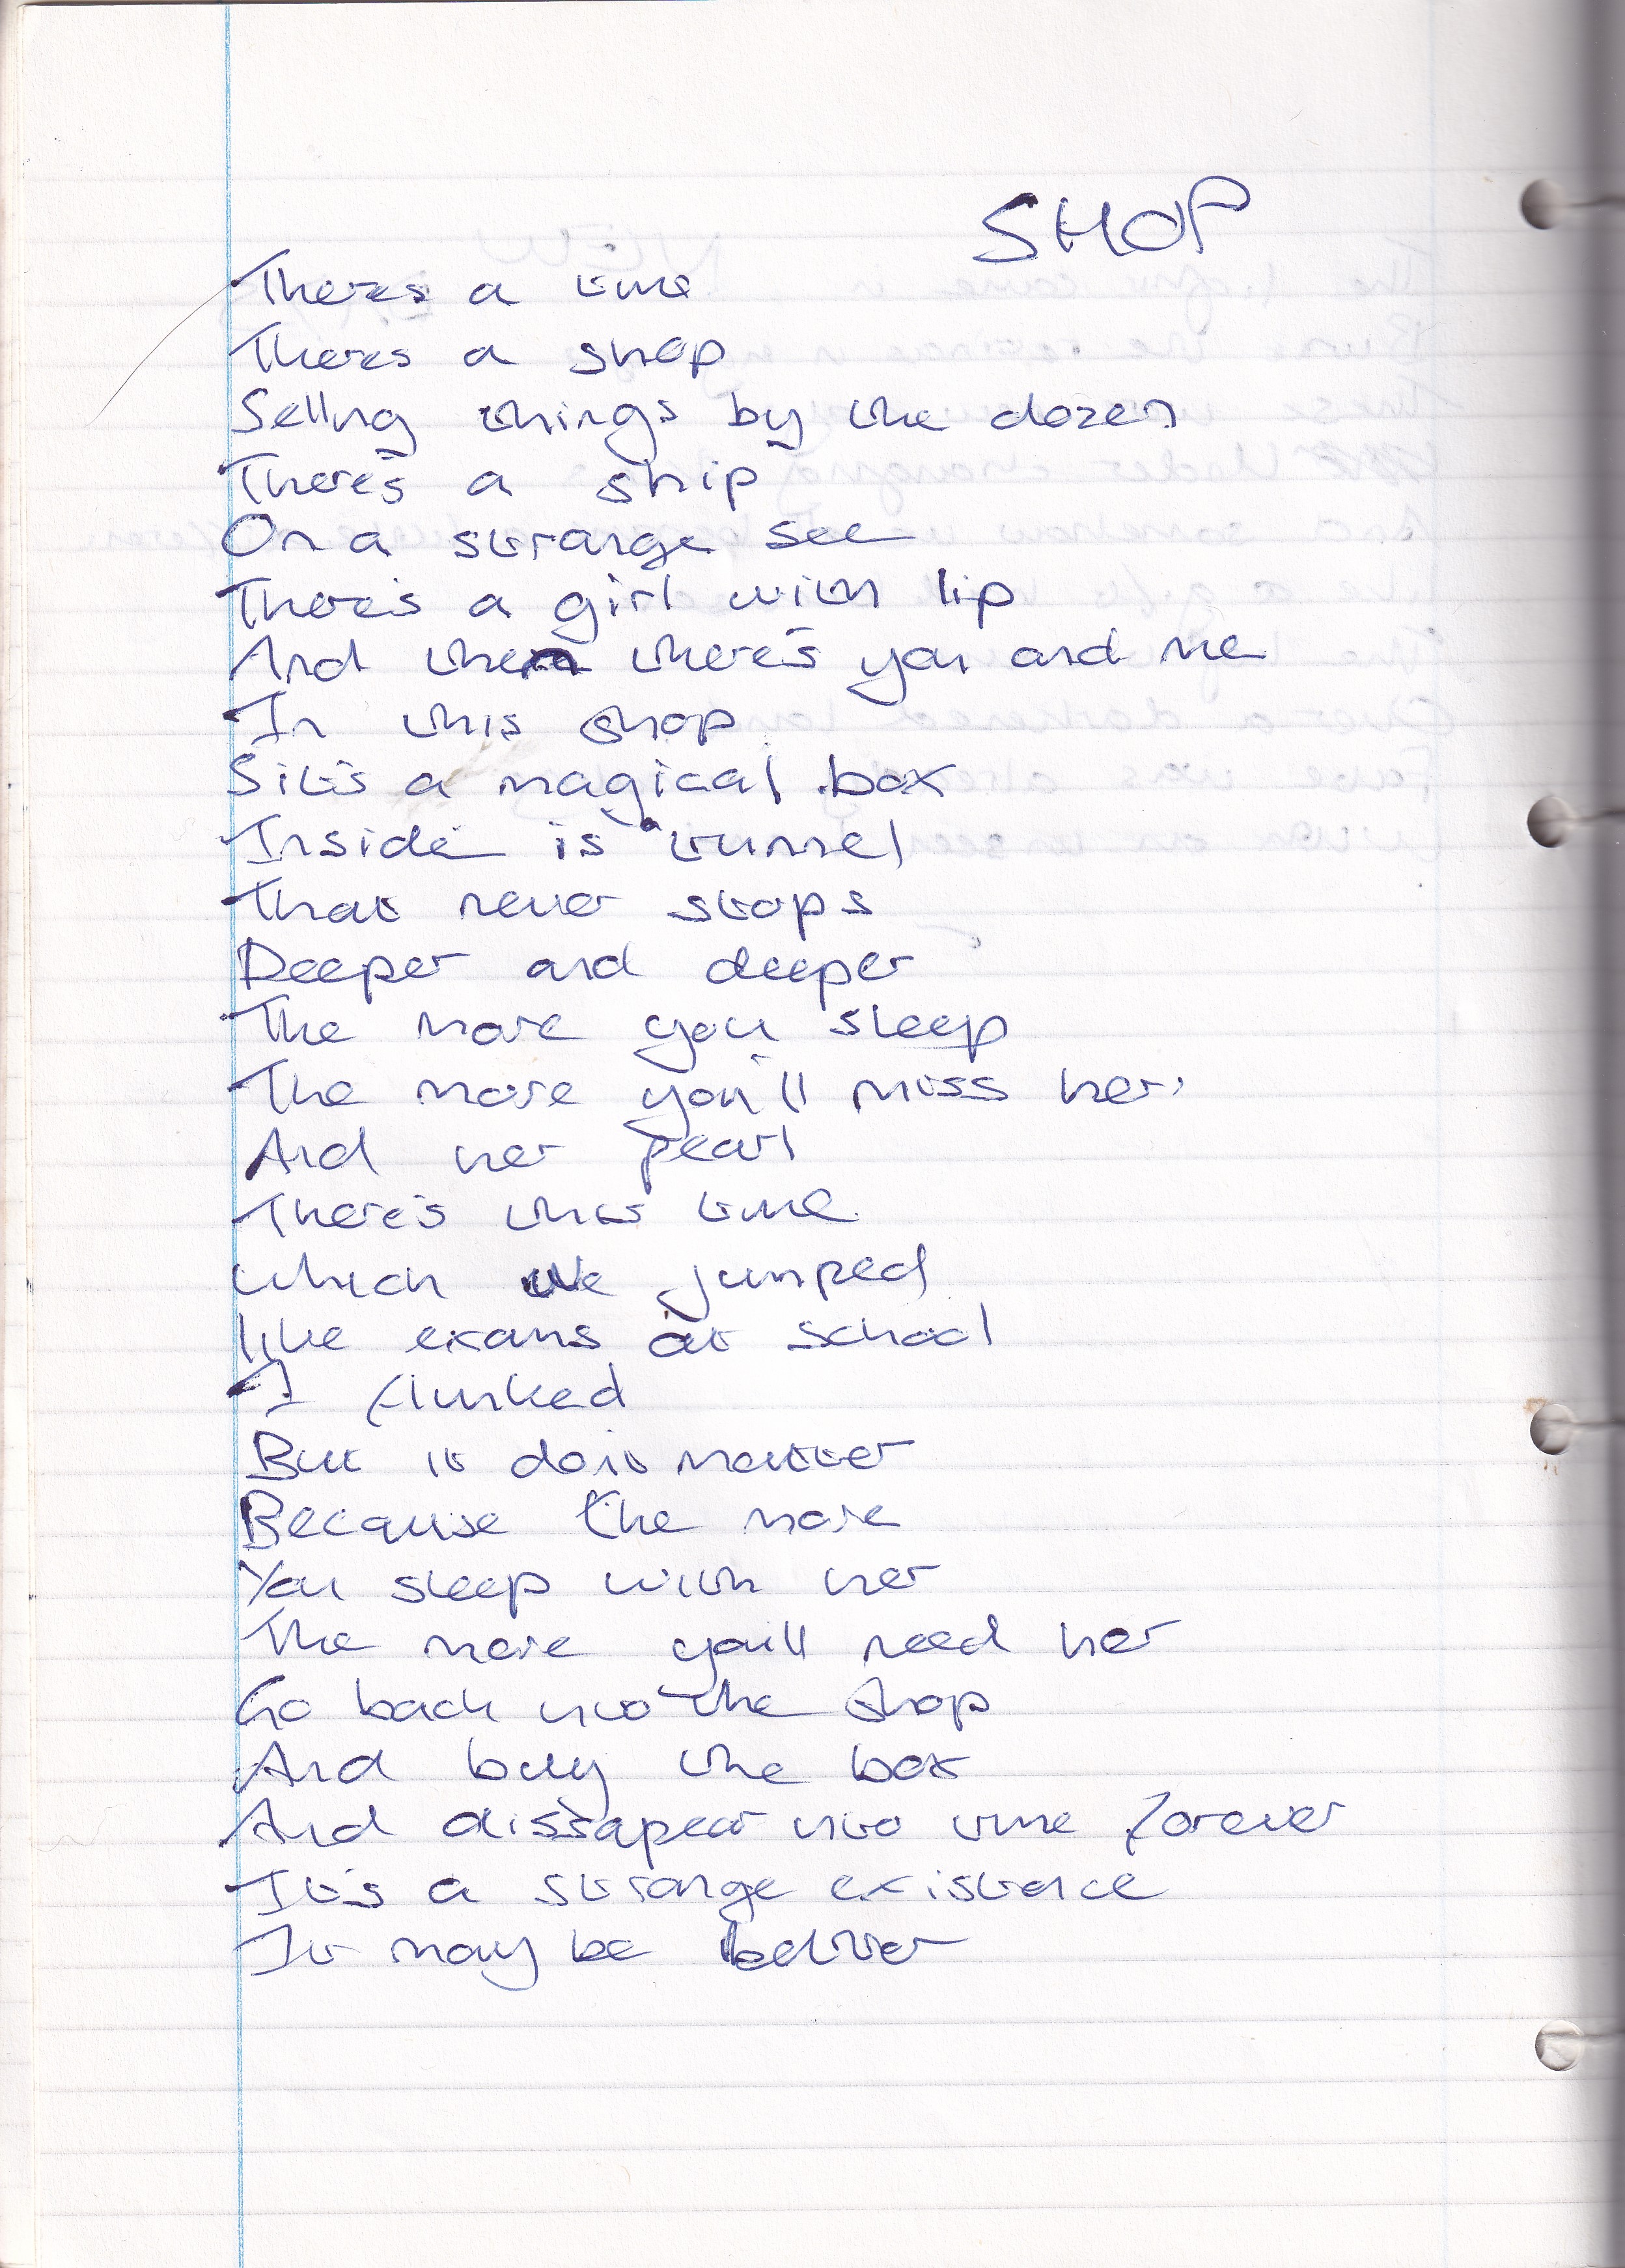 SHOP
Theres a time
Theres a shop
Sellng things by the dozen
There's a ship
On a strange see
There's a girl with lip
And then there's you and me
In this shop
Sits a magical box
Inside is tunnel
That never stops
Deeper and deeper
The more you sleep
The more you'll miss her
And her pearl
There's this time
Which we jumped
like exams at school
I flunked
But it don't matter
Because the more
You sleep with her
The more you'll need her
Go back into the shop
And buy the box
And dissapear into time forever
It's a strange existence
It may be better